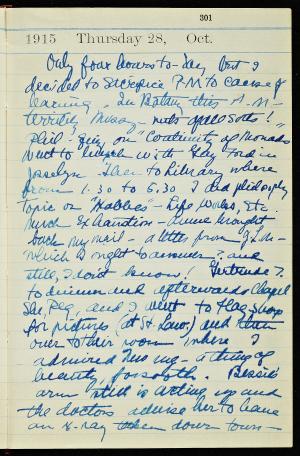 301
1915 Thursday 28, Oct.
Only four hours to-day But I
decided to sacrifice P.M to cause of
learning. In Botany this A.M-
terribly messy - nets of all sorts!
Phil - Quiz on "Continuity of Monads"
went to lunch with Gladys Ford in
Josselyn Then to Library where
from 1.30 to 5.30 I did philosophy
Topic on "Hobbes" - Life, works, Etc
Much Exhaustion - Anne brought
back my mail - a letter from
which I ought to answer? and
still, I don't know! Gertrude
to dinner and afterwards Chapel
She, Peg, and I went to Flag Shop
for pictures (at St Law.) and then
over to their room where I
admired rug - a thing of
beauty, forsooth. Bessie's
arm still is acting up and
the doctors advise her to have
an x-ray taken down town -